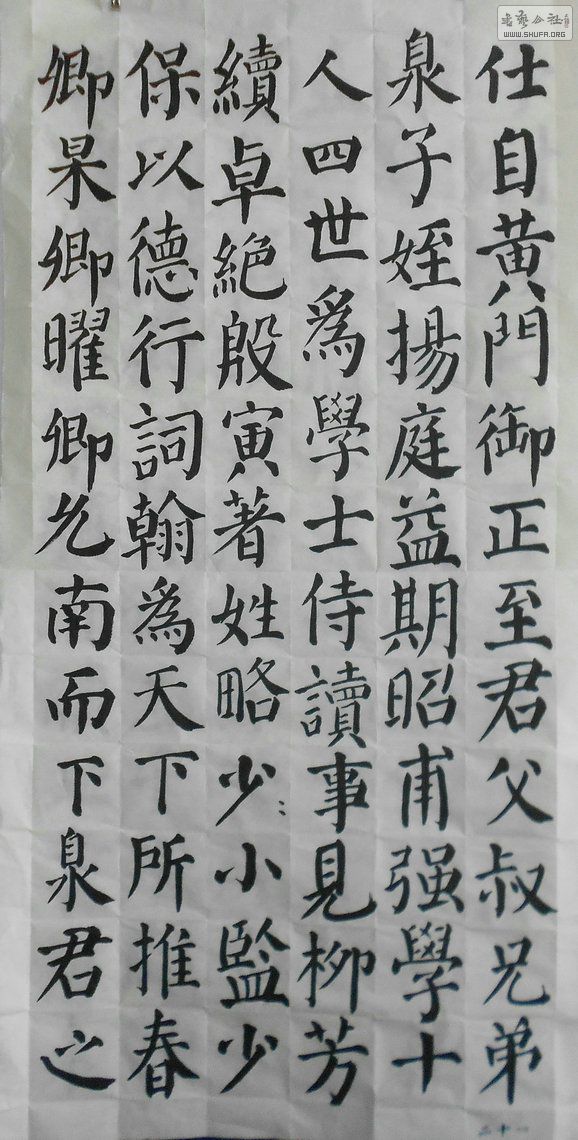 仕自黄門御正至君父叔兄弟
臮子姪揚庭益期昭甫强學十
人四世爲學士侍讀事見柳芳
續卓絶殷寅著姓略少小監少
保以德行詞翰爲天下所推春
卿杲卿曜卿允南而下臮君之
書藝公社
WWW.SHUFA.ORG